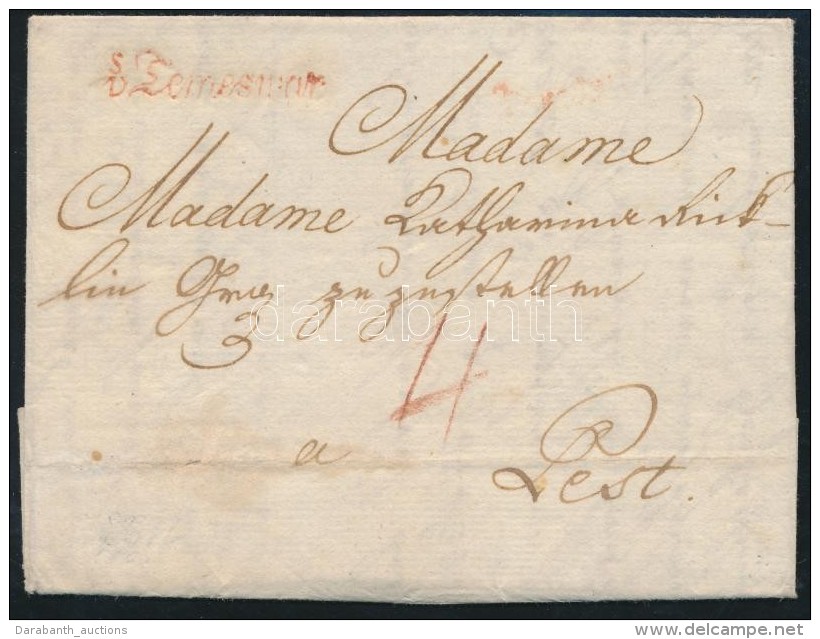 s
v Temeswar
Madame
Madame Katharina Rick-
lin
zuzustellen
4
a Pest.
darabanth
Darabanth_auctions
delcampe.net